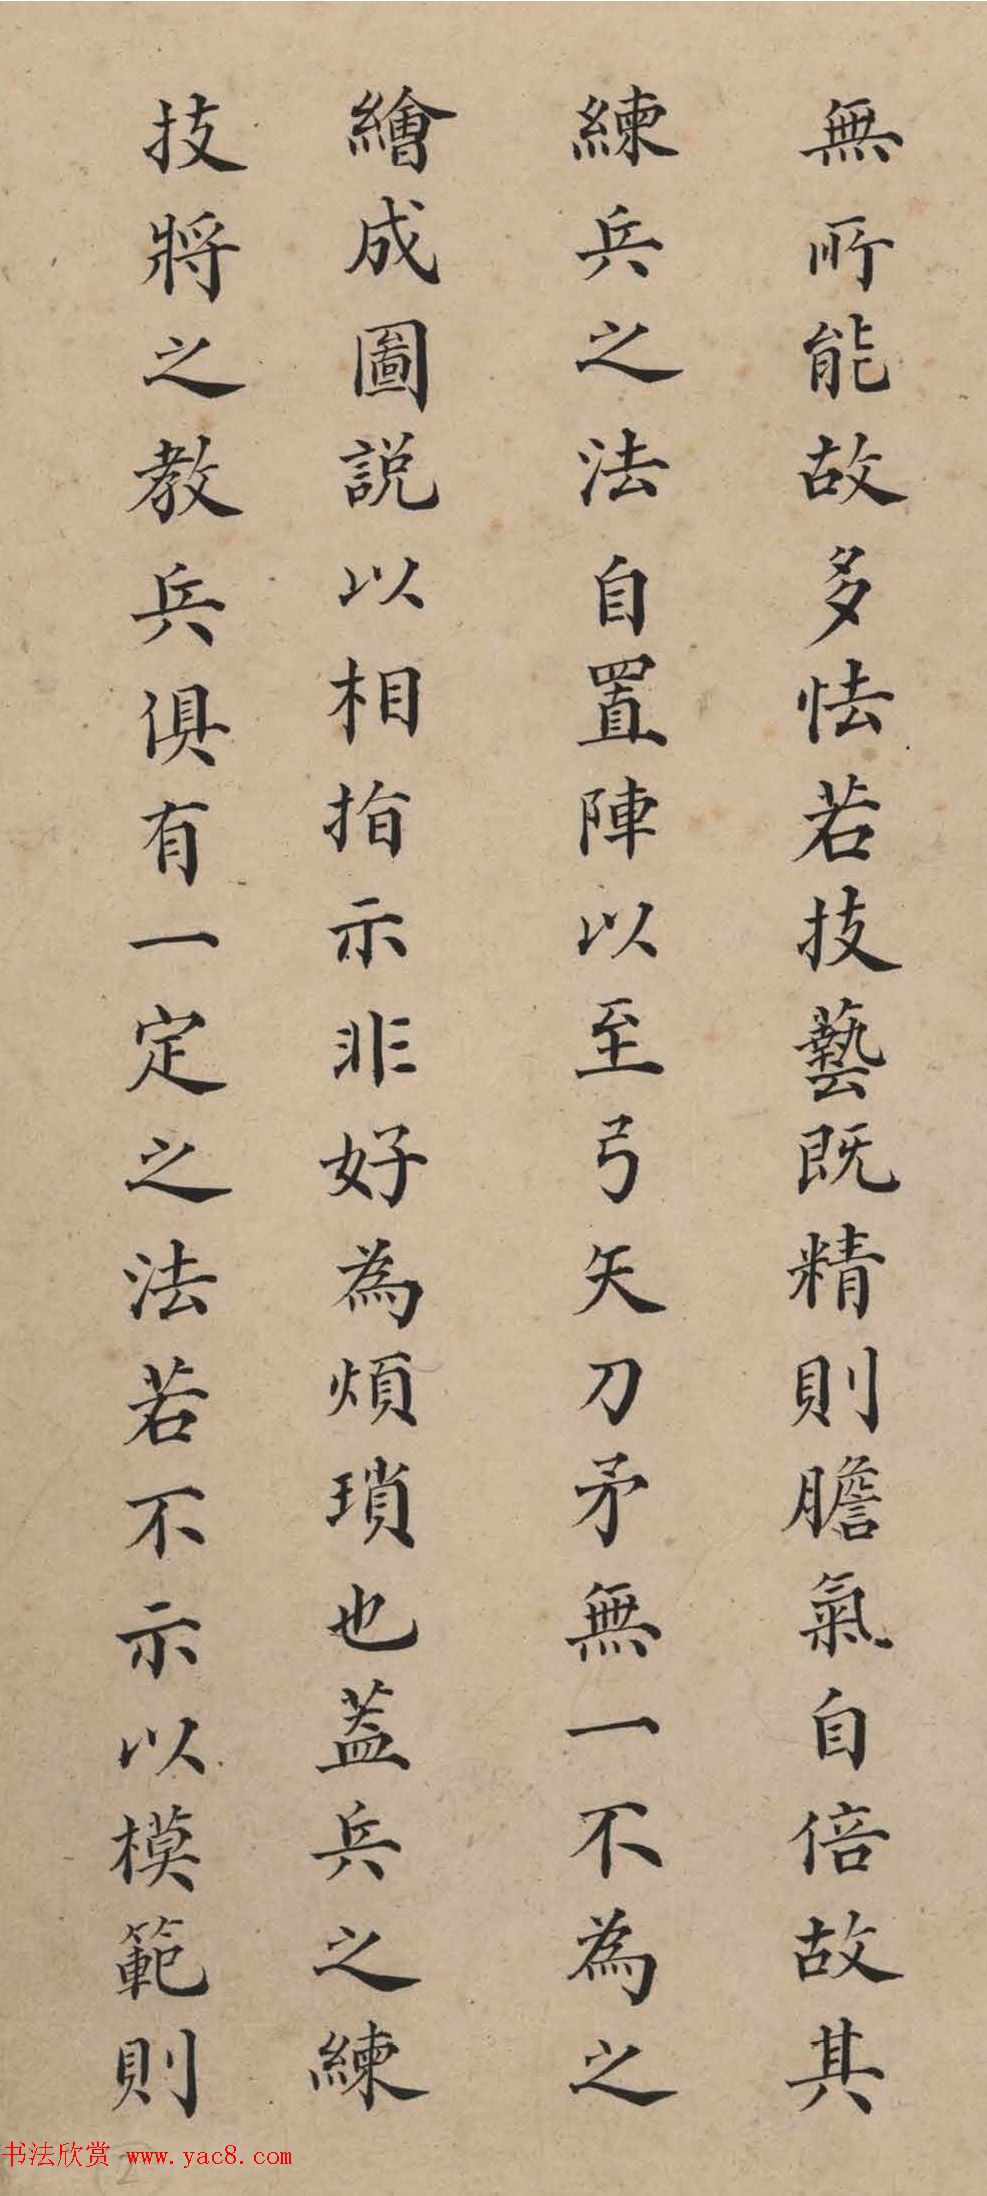 無所能故多怯若技藝既精則膽氣自倍故其
練兵之法自置陣以至弓矢刀矛無一不為之
繪成圖說以相指示非好為煩瑣也蓋兵之練
技將之教兵俱有一定之法若不示以模範則
书法欣赏 www.yac8.com
2